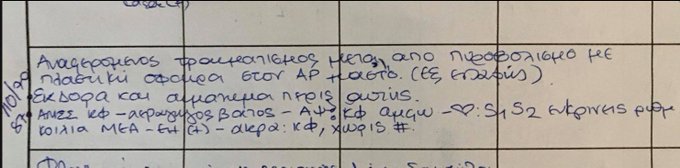 Αναφερόμενος τραυματισμός μετά από πυροβολισμό με
πλαστική σφαίρα στον ΑΡ μαστό. (εξ επαφής)
Εκδορά και αιμάτωμα πέριξ αυτής.
ΑΜΣΣ κφ - αεραγωγός βατός - ΑΨ: κφ άμφω - ♡: S1 S2 ευκρινείς ρυθμ
κοιλιά ΜΕΑ - ΕΗ (+) - άκρα: κφ, χωρίς #.